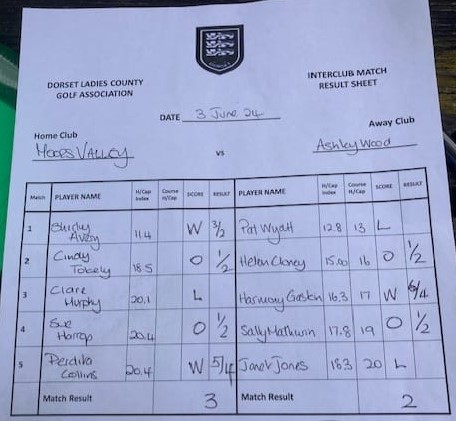 DORSET LADIES COUNTY
GOLF ASSOCIATION
INTERCLUB MATCH
RESULT SHEET
DATE 3 June 24
Home Club
Away Club
Moors Valley
vs
Ashley Wood
Match PLAYER NAME H/Cap Index Course H/Cap SCORE RESULT PLAYER NAME H/Cap Index Course H/Cap SCORE RESULT
1 Shirley Avery 11.4 W 3/2 Pat Wyatt 12.8 13 L
2 Cindy 18.5 O 1/2 Helen 15.0 16 O 1/2
3 Clare Murphy 20.1 L Harmony 16.3 17 W 6/4
4 Sue Harrop 20.4 O 1/2 Sally 17.8 19 O 1/2
5 Perdita Collins 20.4 W 5/4 Janet Jones 18.3 20 L
Match Result 3 Match Result 2